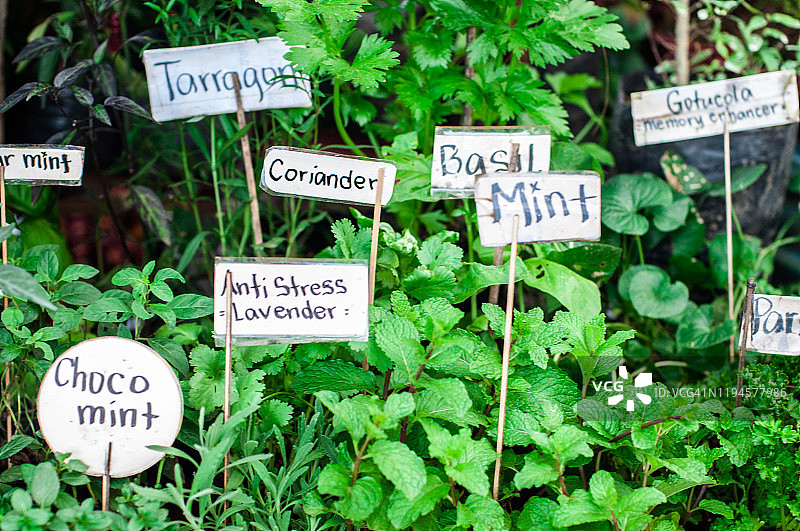 Tarragon
Gotucola
-memory enhancer-
Basil
r mint
Coriander
Mint
Anti Stress
-Lavender-
Par
Choco
mint
VCG
ID:VCG41N1194577986